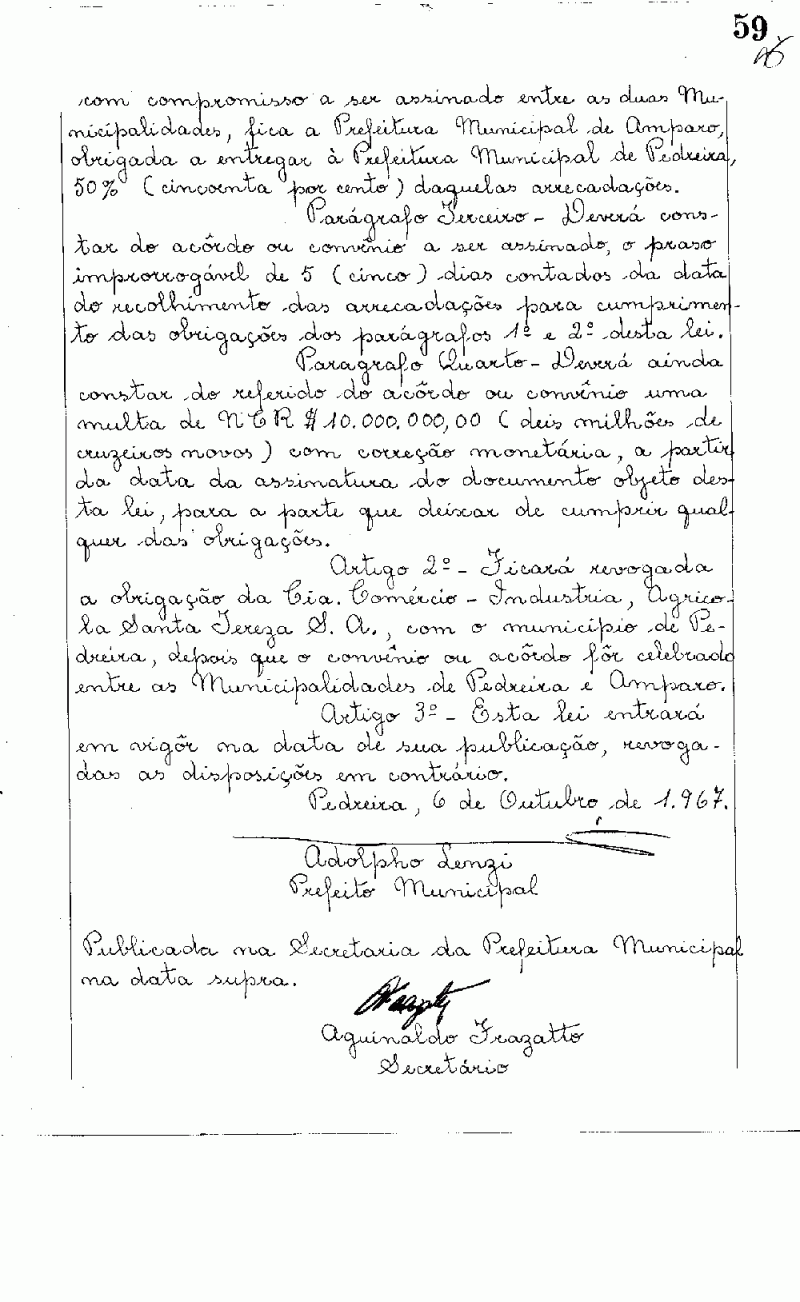 59
com compromisso a ser assinado entre as duas Mu-
nicipalidades, fica a Prefeitura Municipal de Amparo,
obrigada a entregar à Prefeitura Municipal de Pedreira,
50% (cincoenta por cento) daquelas arrecadações.
Parágrafo Terceiro - Deverá cons-
tar do acôrdo ou convênio a ser assinado, o praso
improrrogável de 5 (cinco) dias contados da data
do recolhimento das arrecadações para cumprimen-
to das obrigações dos parágrafos 1º e 2º desta lei.
Paragrafo Quarto - Deverá ainda
constar do referido do acôrdo ou convênio uma
multa de NCR $ 10.000.000,00 (deis milhões de
cruzeiros novos) com correção monetária, a partir
da data da assinatura do documento objeto des-
ta lei, para a parte que deixar de cumprir qual-
quer das obrigações.
Artigo 2º - Ficará revogada
a obrigação da Cia. Comércio - Industria, Agrico-
la Santa Tereza S. A., com o município de Pe-
dreira, depois que o convênio ou acôrdo fôr celebrado
entre as Municipalidades de Pedreira e Amparo.
Artigo 3º - Esta lei entrará
em vigôr na data de sua publicação, revoga-
das as disposições em contrário.
Pedreira, 6 de Outubro de 1.967.
Adolpho Lenzi
Prefeito Municipal
Publicada na Secretaria da Prefeitura Municipal
na data supra.
Aguinaldo Frazatto
Secretário